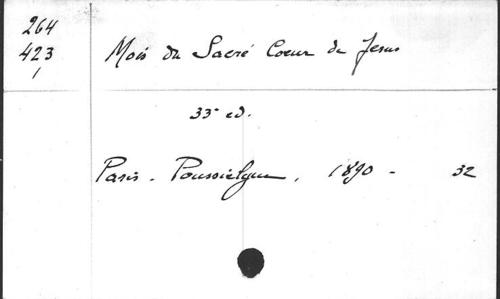 264
423
1
Mois du Sacré Coeur de Jesus
33e ed.
Paris - Poussielgue, 1890 - 32